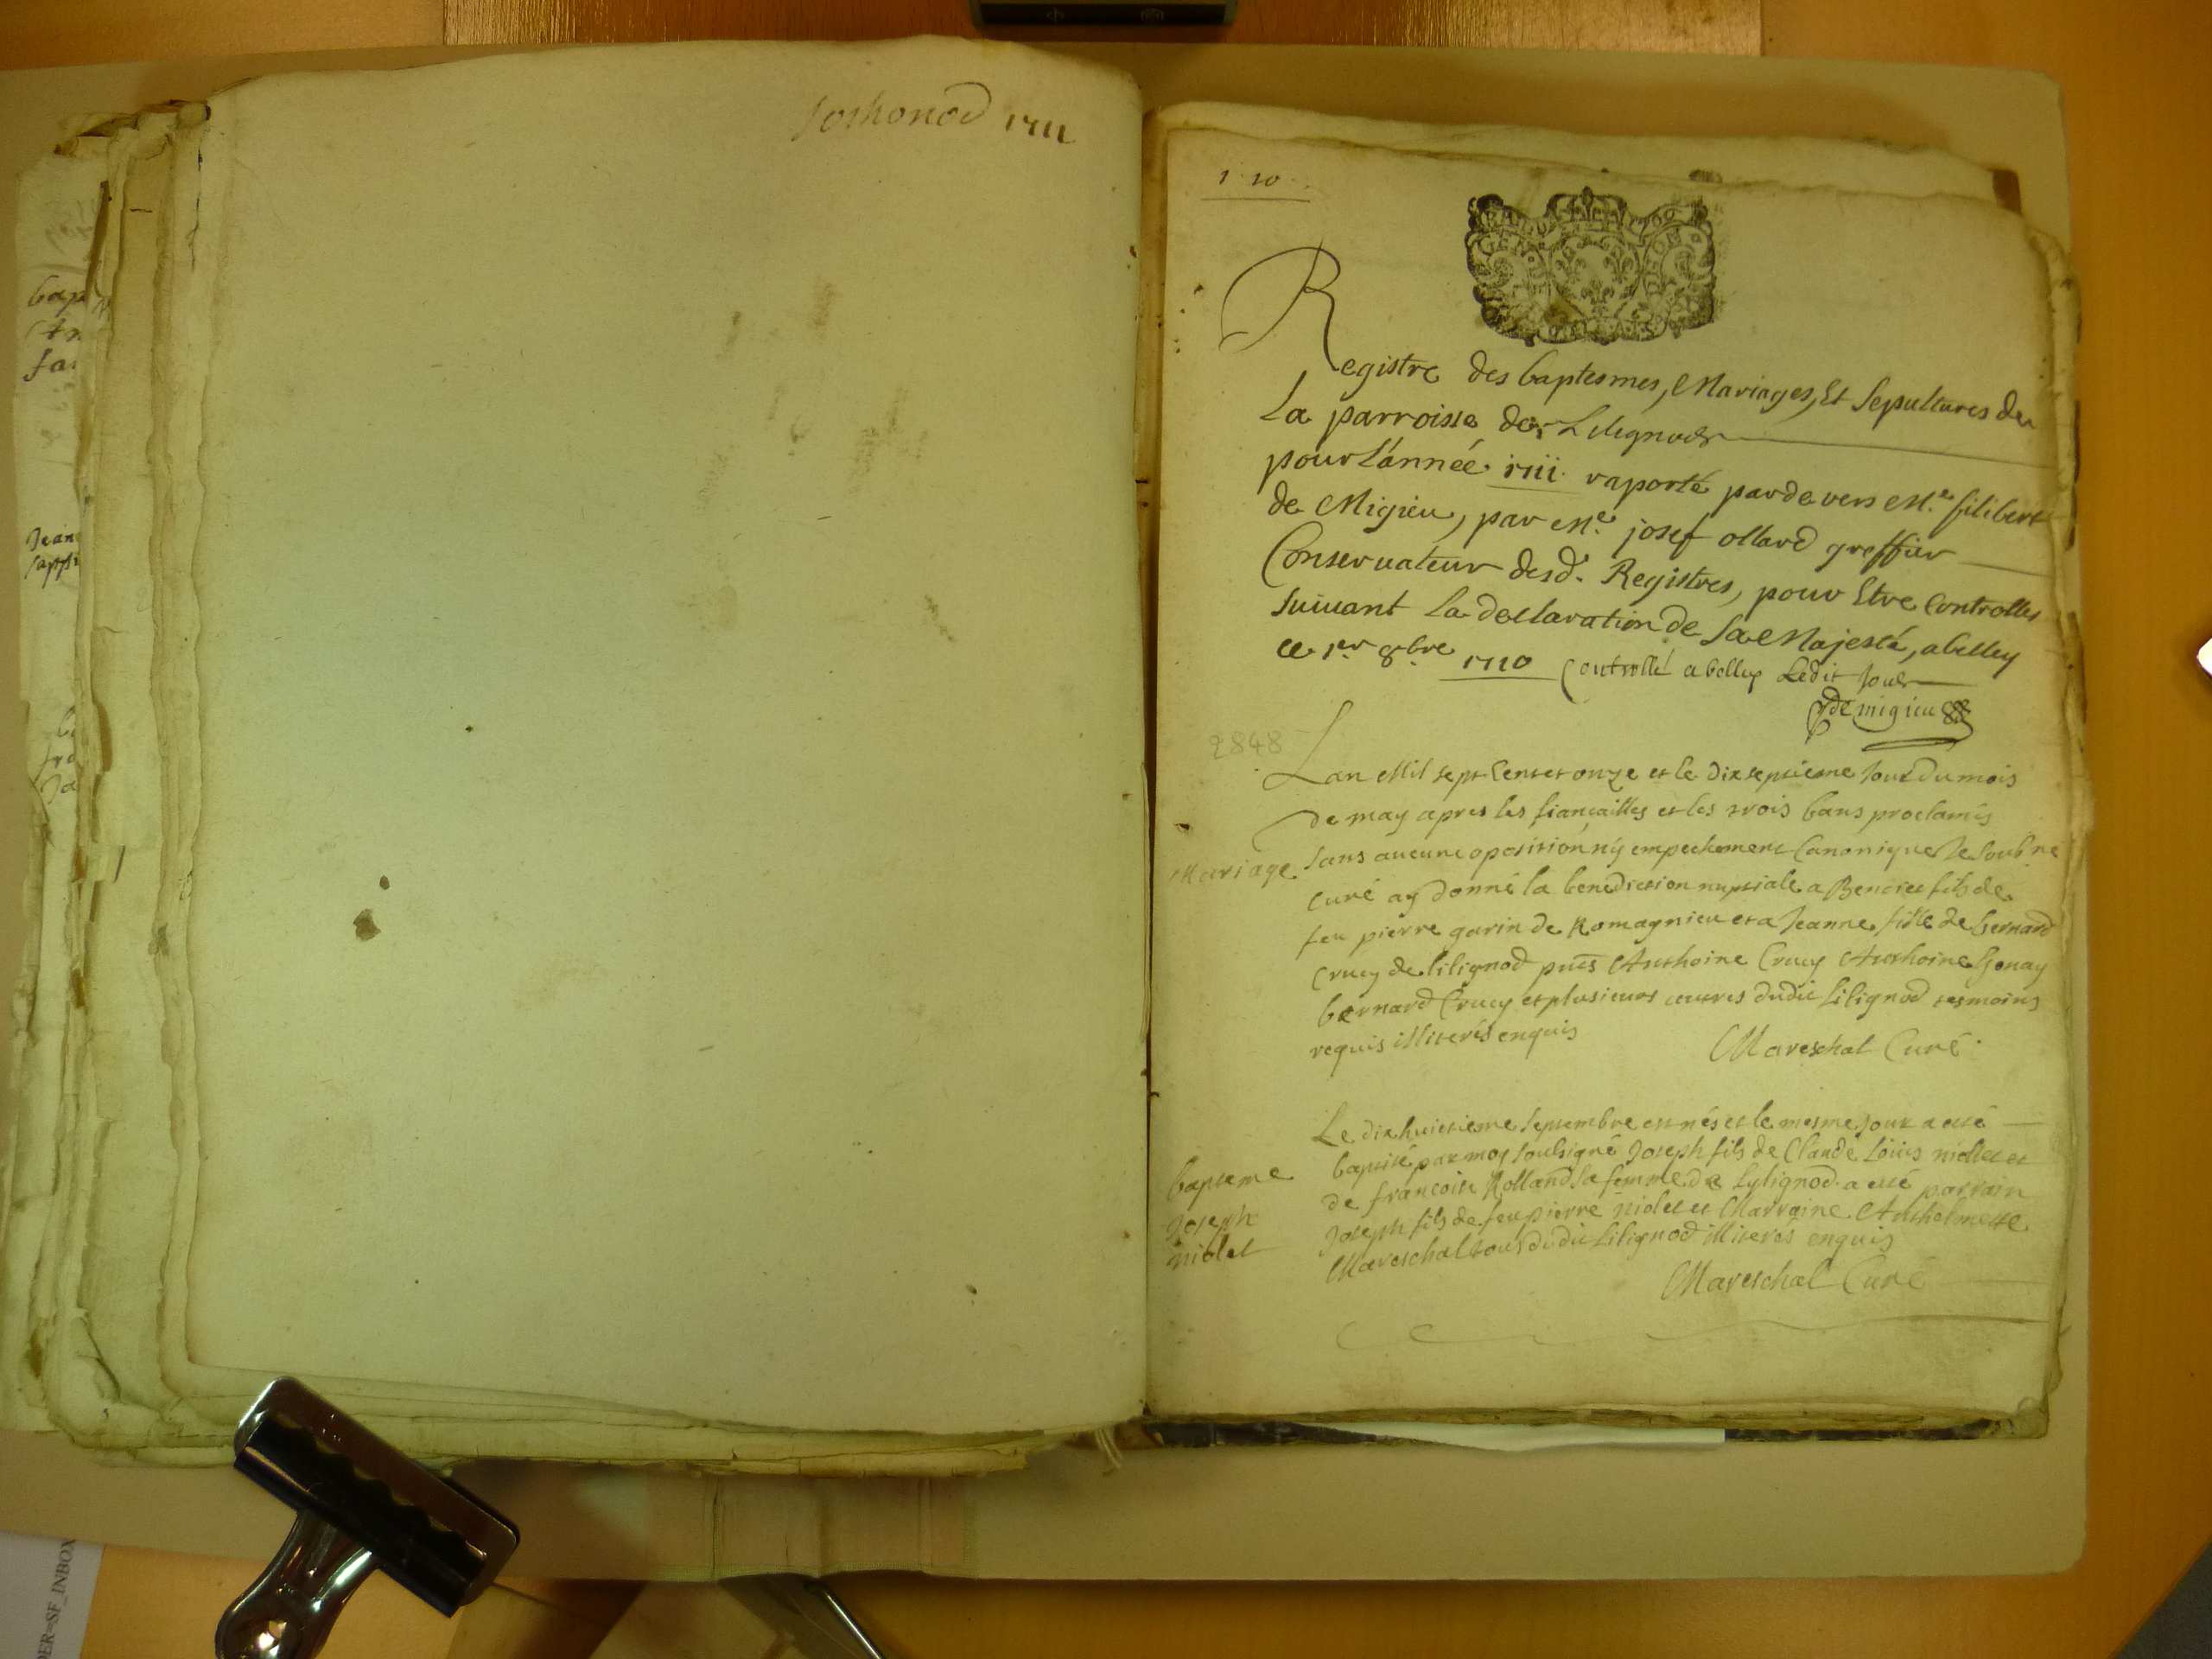 Sothonod 1711
1 10
Registre des baptesmes, Mariages, Et Sepultures de
La parroisse de Lilignod
pour L'année 1711 raporté pardevers Me. filibert
de Migieu, par Me. josef ollard greffier
Conservateur desd. Registres, pour Etre Controlles
Suivant la declaration de Sa Majesté, a belley
ce 1er 8bre 1710 Controllé a belley Ledit Jour
de migieu
2848
Lan Mil sept Cent et onze et le dix septieme Jour du mois
de may apres les fiancailles et les trois bans proclamés
Mariage
sans aucune oposition ny empechement Canonique Je soubne
curé ay donné la benediction nuptiale a Benoict fils de
feu pierre garin de Romagnieu et a Jeanne fille de bernard
Crucy de lilignod pnts Anthoine Crucy Anthoine
bernard Crucy et plusieurs autres dudit Lilignod tesmoins
requis illiterés enquis
Mareschal Curé
Le dix huictieme septembre est nés et le mesme Jour a esté
baptisé par moy soubsigné Joseph fils de Claude Loüis niollet et
de francoise Rolland sa femme de Lylignod a esté parrain
Joseph fils de feu pierre niolet et Marraine Anthelmette
Mareschal tous dudit Lilignod illiterés enquis
bapteme
Joseph
niolet
Mareschal Curé